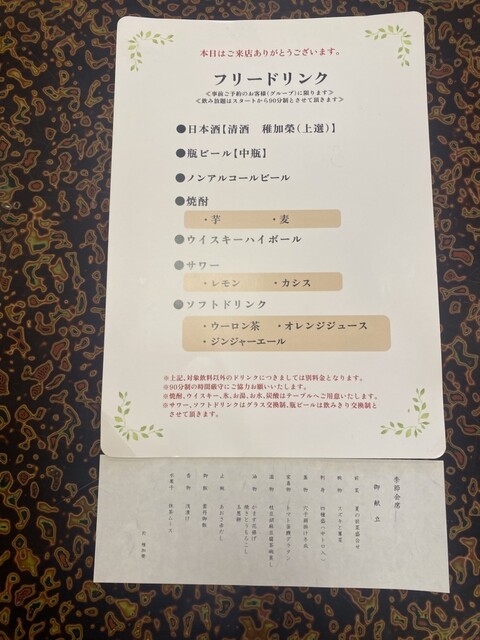 本日はご来店ありがとうございます。
フリードリンク
≪事前ご予約のお客様(グループ)に限ります≫
≪飲み放題はスタートから90分制とさせて頂きます≫
●日本酒【清酒　稚加榮(上選)】
●瓶ビール【中瓶】
●ノンアルコールビール
●焼酎
・芋　・麦
●ウイスキーハイボール
●サワー
・レモン　・カシス
●ソフトドリンク
・ウーロン茶　・オレンジジュース
・ジンジャーエール
※上記、対象飲料以外のドリンクにつきましては別料金となります。
※90分制の時間厳守にご協力お願いいたします。
※焼酎、ウイスキー、氷、お湯、お水、炭酸はテーブルへご用意いたします。
※サワー、ソフトドリンクはグラス交換制、瓶ビールは飲みきり交換制と
させて頂きます。
季節会席
御献立
前菜　夏の前菜盛合せ
吸物
焼きとうもろこし
止椀　あおさ赤だし
御飯
香物　浅漬け
水菓子　抹茶ムース